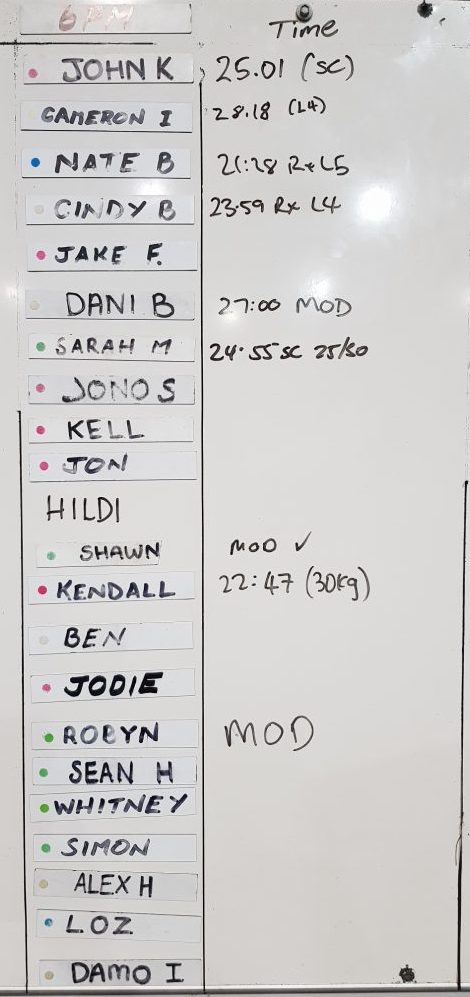 6PM Time
JOHN K 25.01 (SC)
CAMERON I 28.18 (L4)
NATE B 21:28 Rx L5
CINDY B 23.59 Rx L4
JAKE F.
DANI B 27:00 MOD
SARAH M 24.55 SC 25/30
JONO S
KELL
JON
HILDI
SHAWN MOD ✓
KENDALL 22:47 (30kg)
BEN
JODIE
ROBYN MOD
SEAN H
WHITNEY
SIMON
ALEX H
LOZ
DAMO I